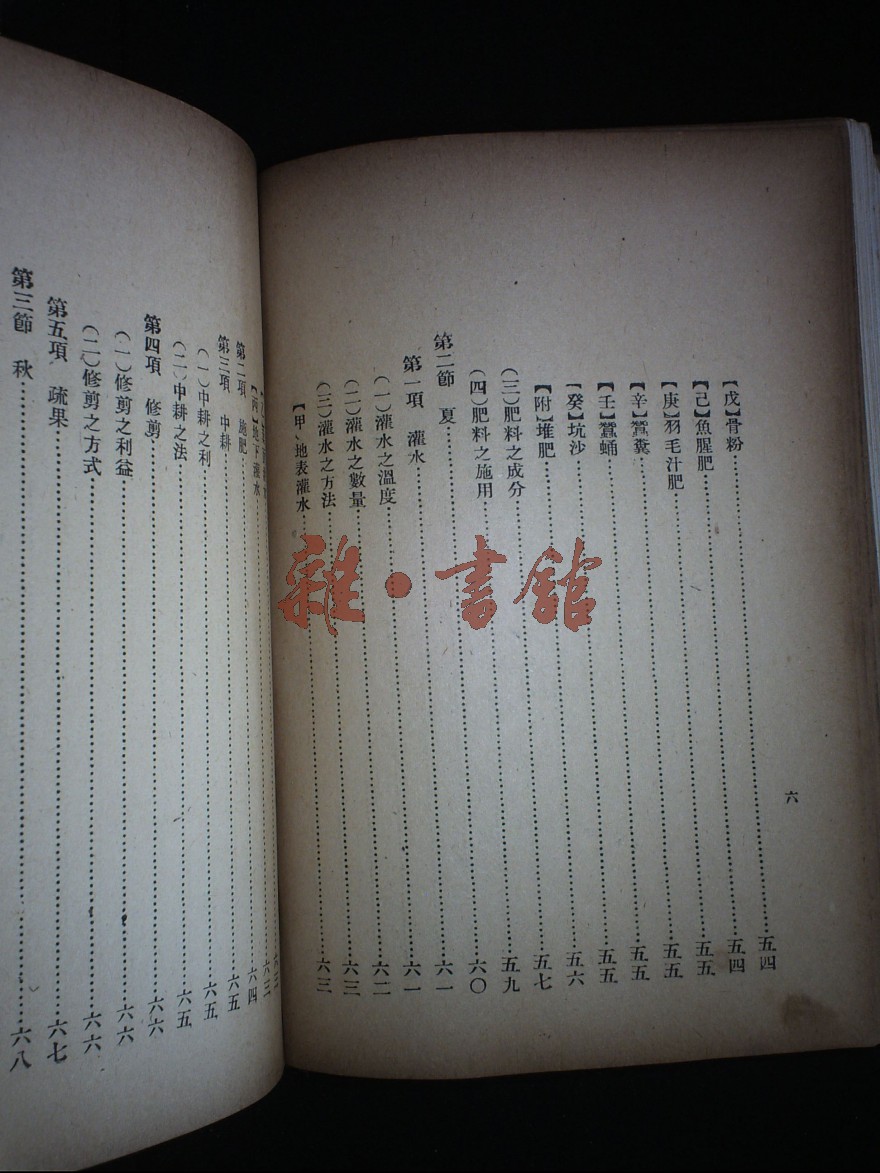 六
【戊】骨粉……五四
【己】魚腥肥……五四
【庚】羽毛汁肥……五五
【辛】蠶糞……五五
【壬】蠶蛹……五五
【癸】坑沙……五五
【附】堆肥……五六
(三)肥料之成分……五七
(四)肥料之施用……五九
第二節 夏……六〇
第一項 灌水……六一
(一)灌水之溫度……六一
(二)灌水之數量……六二
(三)灌水之方法……六三
【甲、地表灌水……六三
【丙】地下灌水……六三
第二項 施肥……六四
第三項 中耕……六五
(一)中耕之利……六五
(二)中耕之法……六五
第四項 修剪……六六
(一)修剪之利益……六六
(二)修剪之方式……六六
第五項 疏果……六七
第三節 秋……六八
雜·書館